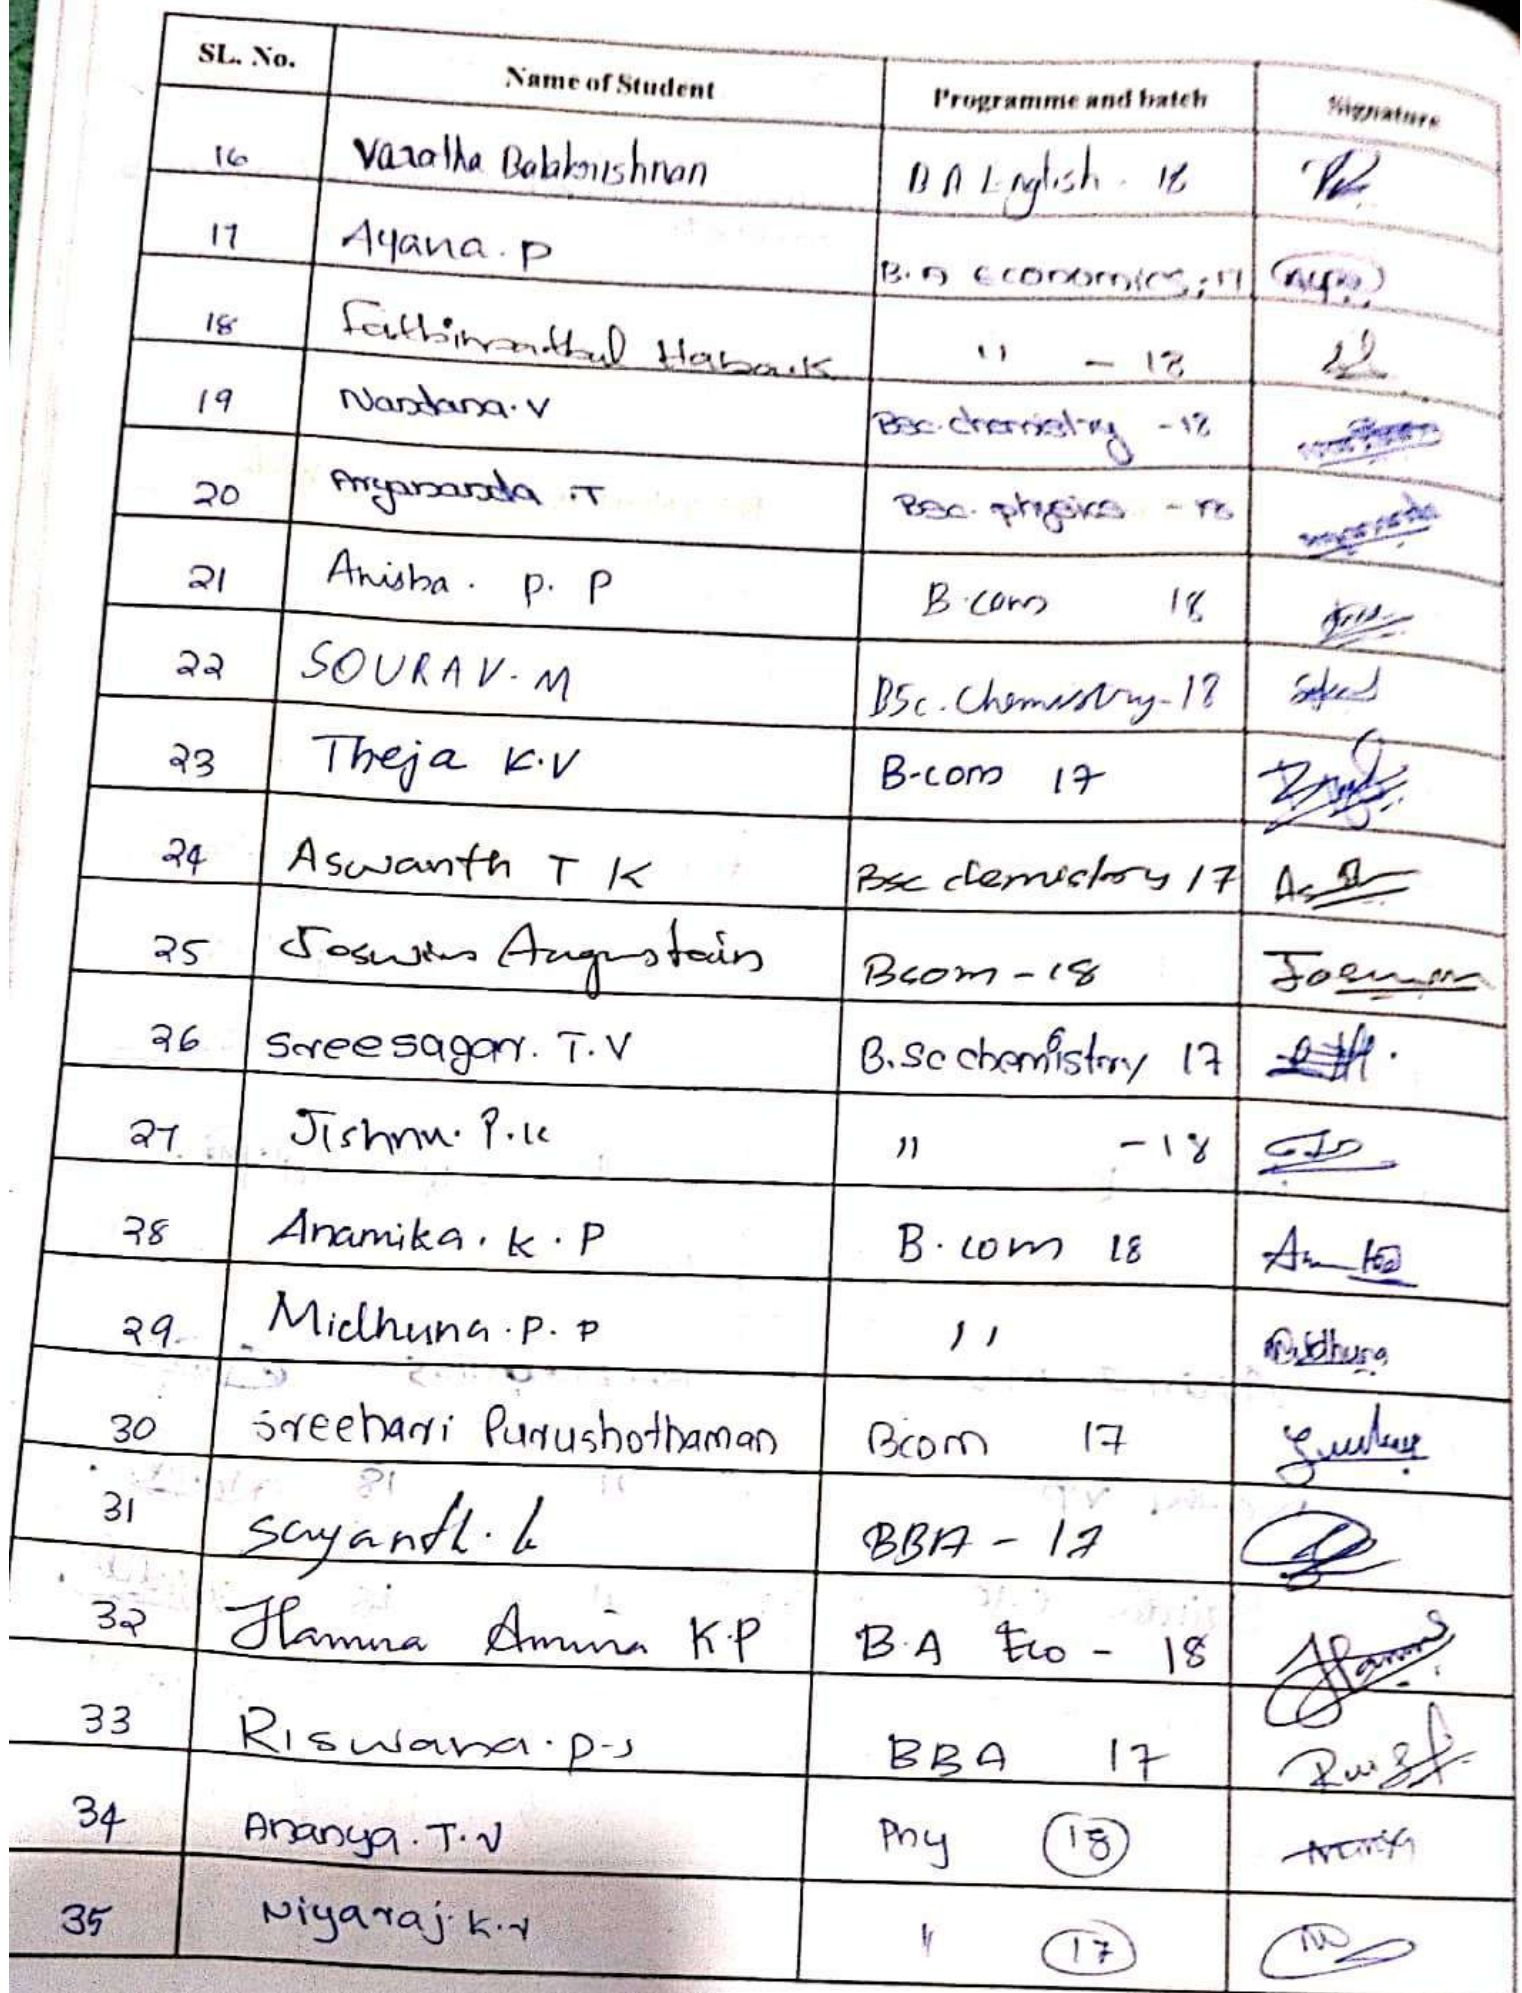 SL. No. Name of Student Programme and batch Signature
16 Varatha Balakrishnan B A English - 18
17 Ayana. P B. A Economics, 17
18 Fathimathul Haba.K " - 18
19 Nandana. V Bsc. chemistry - 18
20 Aryananda .T Bsc. physics - 18
21 Anisha. P. P B.com 18
22 SOURAV. M BSc. Chemistry - 18
23 Theja K.V B-com 17
24 Aswanth T K Bsc chemistry 17
25 Joswin Augustain Bcom - 18
26 Sreesagar. T.V B.Sc chemistry 17
27 Jishnu. P.K " - 18
28 Anamika. K. P B. com 18
29 Midhuna. P. P " Midhuna
30 Sreehari Purushothaman Bcom 17
31 Sayanth. k BBA - 17
32 Hamna Amina K.P B.A Eco - 18 Hamna
33 Riswana. P-s BBA 17
34 Ananya. T. V Phy 18 Ananya
35 Niyaraj. K.v " 17